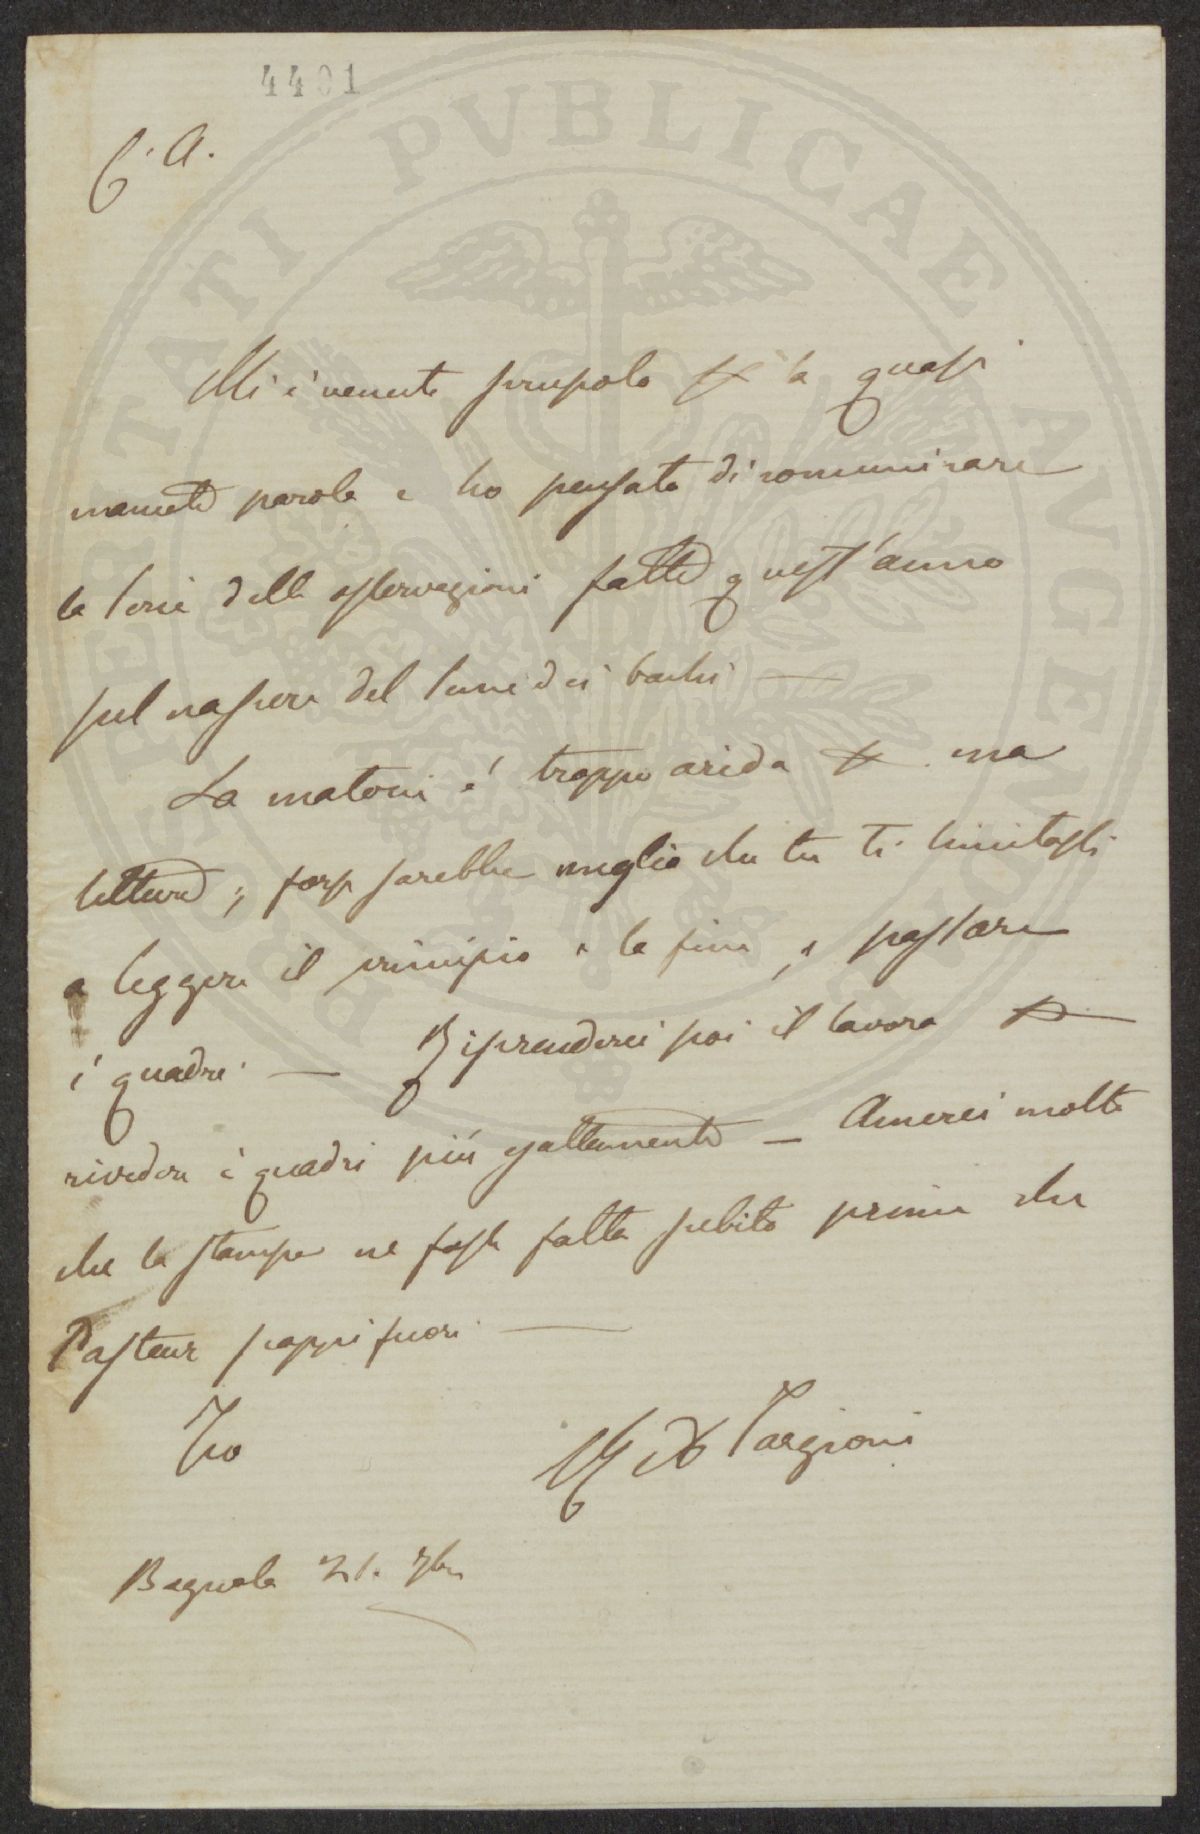 4401
C. A.
Mi è venuto scrupolo per la quasi
mancata parola e ho pensato di comunicare
la serie delle osservazioni fatte quest'anno
sul nascere del seme dei bachi —
La materia è troppo arida per una
lettura; forse sarebbe meglio che tu ti limitassi
a leggere il principio e la fine, e passare
i quadri — Riprenderei poi il lavoro per
rivedere i quadri più esattamente — Amerei molto
che la stampa ne fosse fatta subito prima che
Pasteur scappi fuori —
Tuo
Ad Targioni
Bagnolo 21. 7bre
PROSPERITATI PVBLICAE AVGENDAE